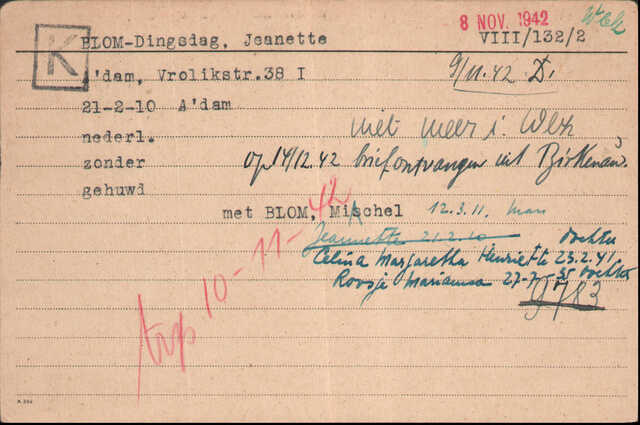 8 NOV. 1942 WBk
K BLOM-Dingsdag, Jeanette VIII/132/2
A'dam, Vrolikstr.38 I 9/11.42 D.
21-2-10 A'dam
nederl. niet meer i. Wbk
zonder op 14/12.42 brief ontvangen uit Birkenau.
gehuwd
met BLOM, Mischel 12.3.11. man
Jeannette 21.2.10 dochter
Celina Margaretha Henriette 23.2.41
Roosje Marianna 27-7-35 dochter
9783
trp 10-11-42